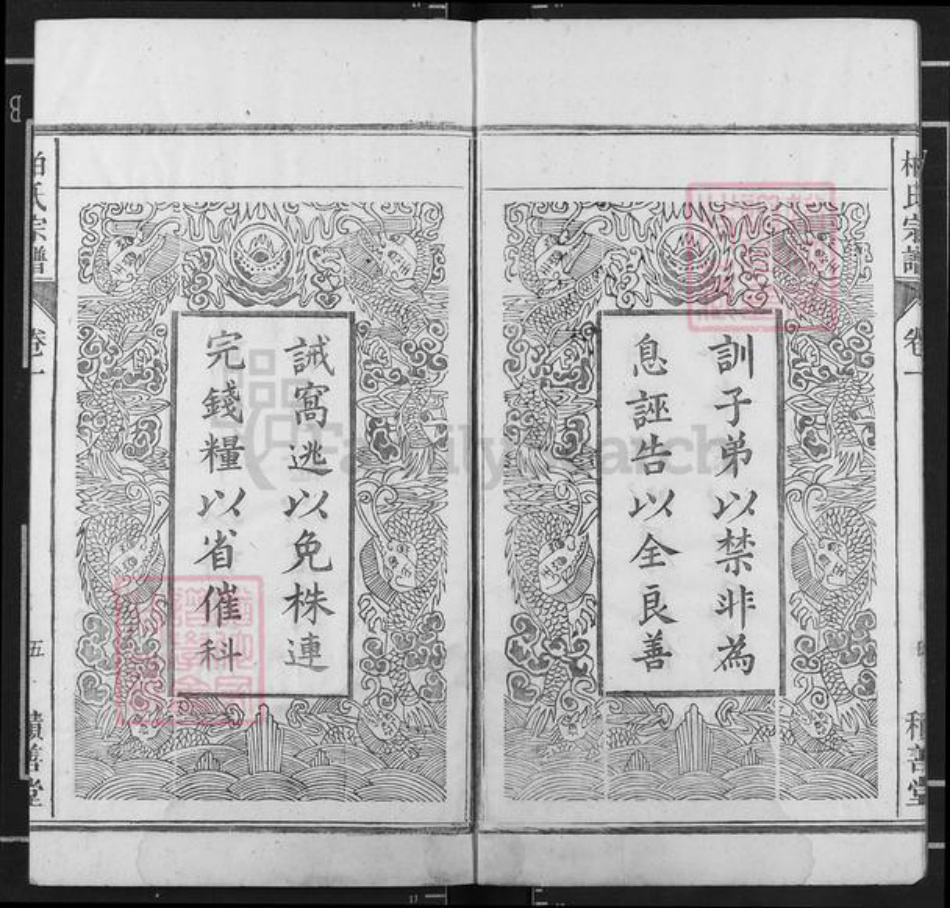 訓子弟以禁非為
息誣告以全良善
誡窩逃以免株連
完錢糧以省催科
氏宗譜
卷一
善堂
柏氏宗譜
卷一
五
積善堂
FamilySearch